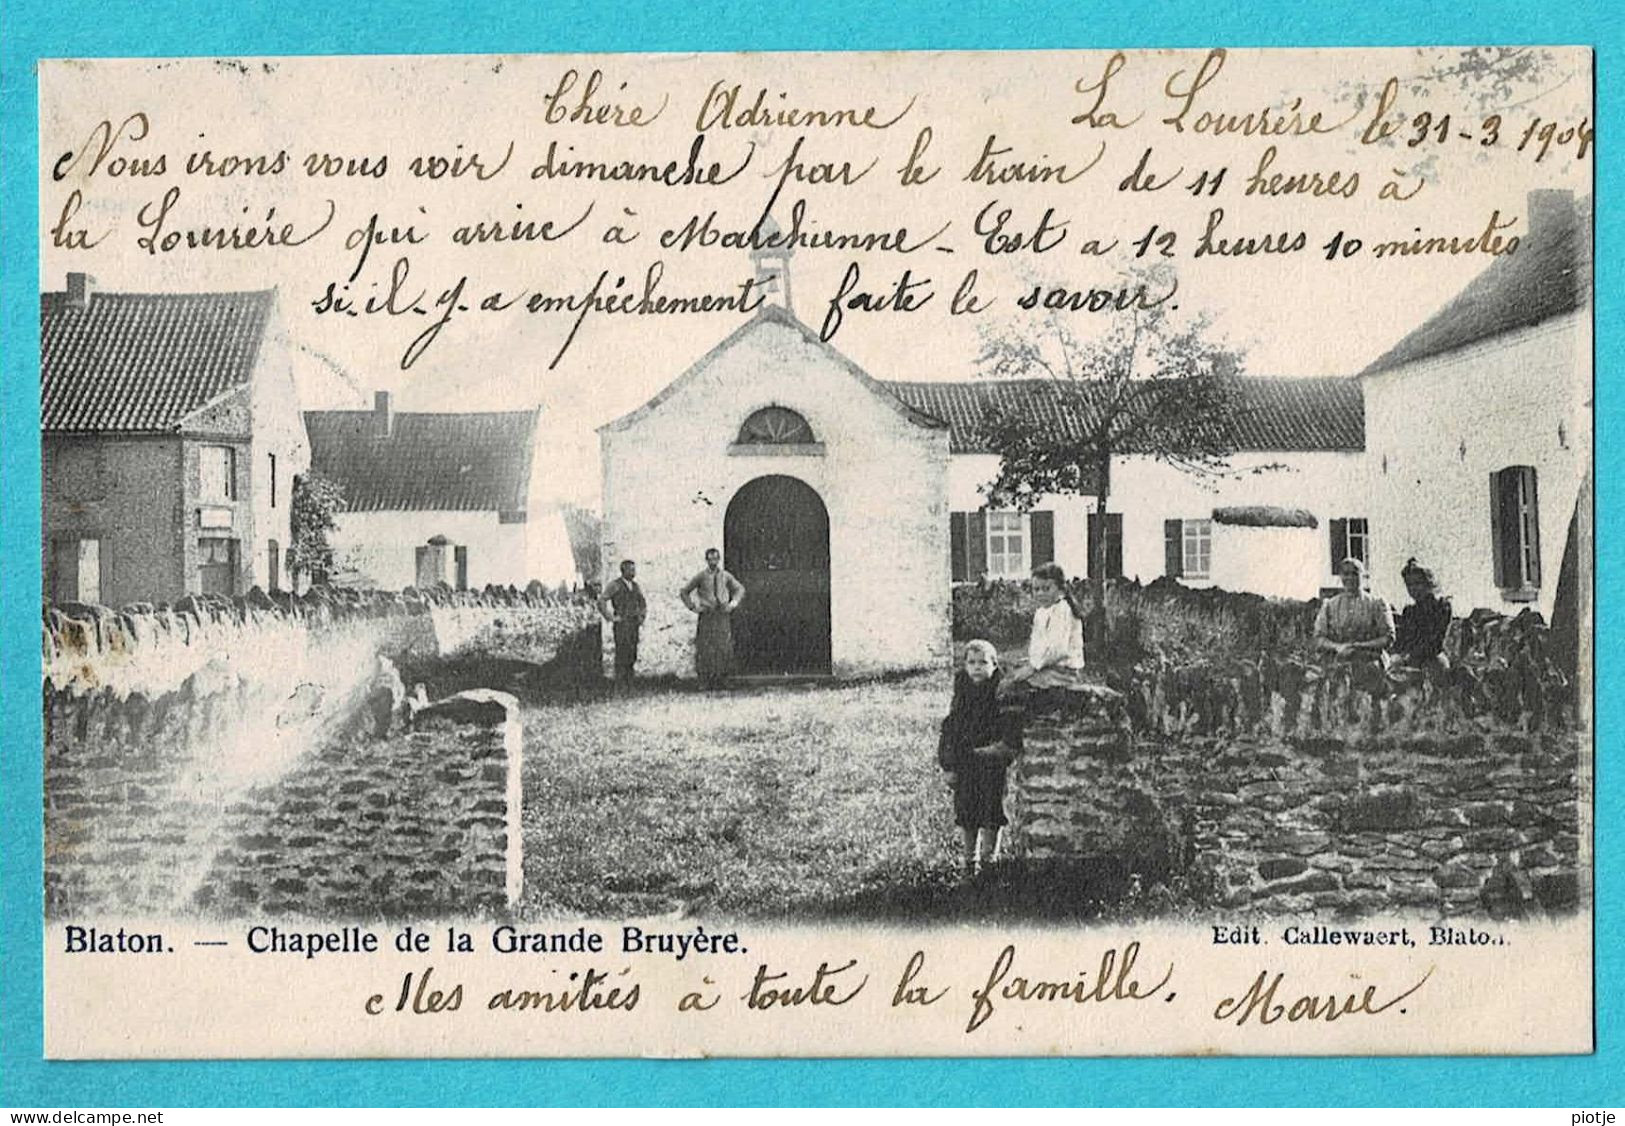 Chére Adrienne La Louviére le 31-3 1904
Nous irons vous voir dimanche par le train de 11 heures à
la Louviére qui arrive à Marchienne - Est a 12 heures 10 minutes
si-il-y-a empéchement faite le savoir.
Blaton. — Chapelle de la Grande Bruyère.
Edit. Callewaert, Blaton.
Mes amitiés à toute la famille. Marie.
delcampe.net
piotje